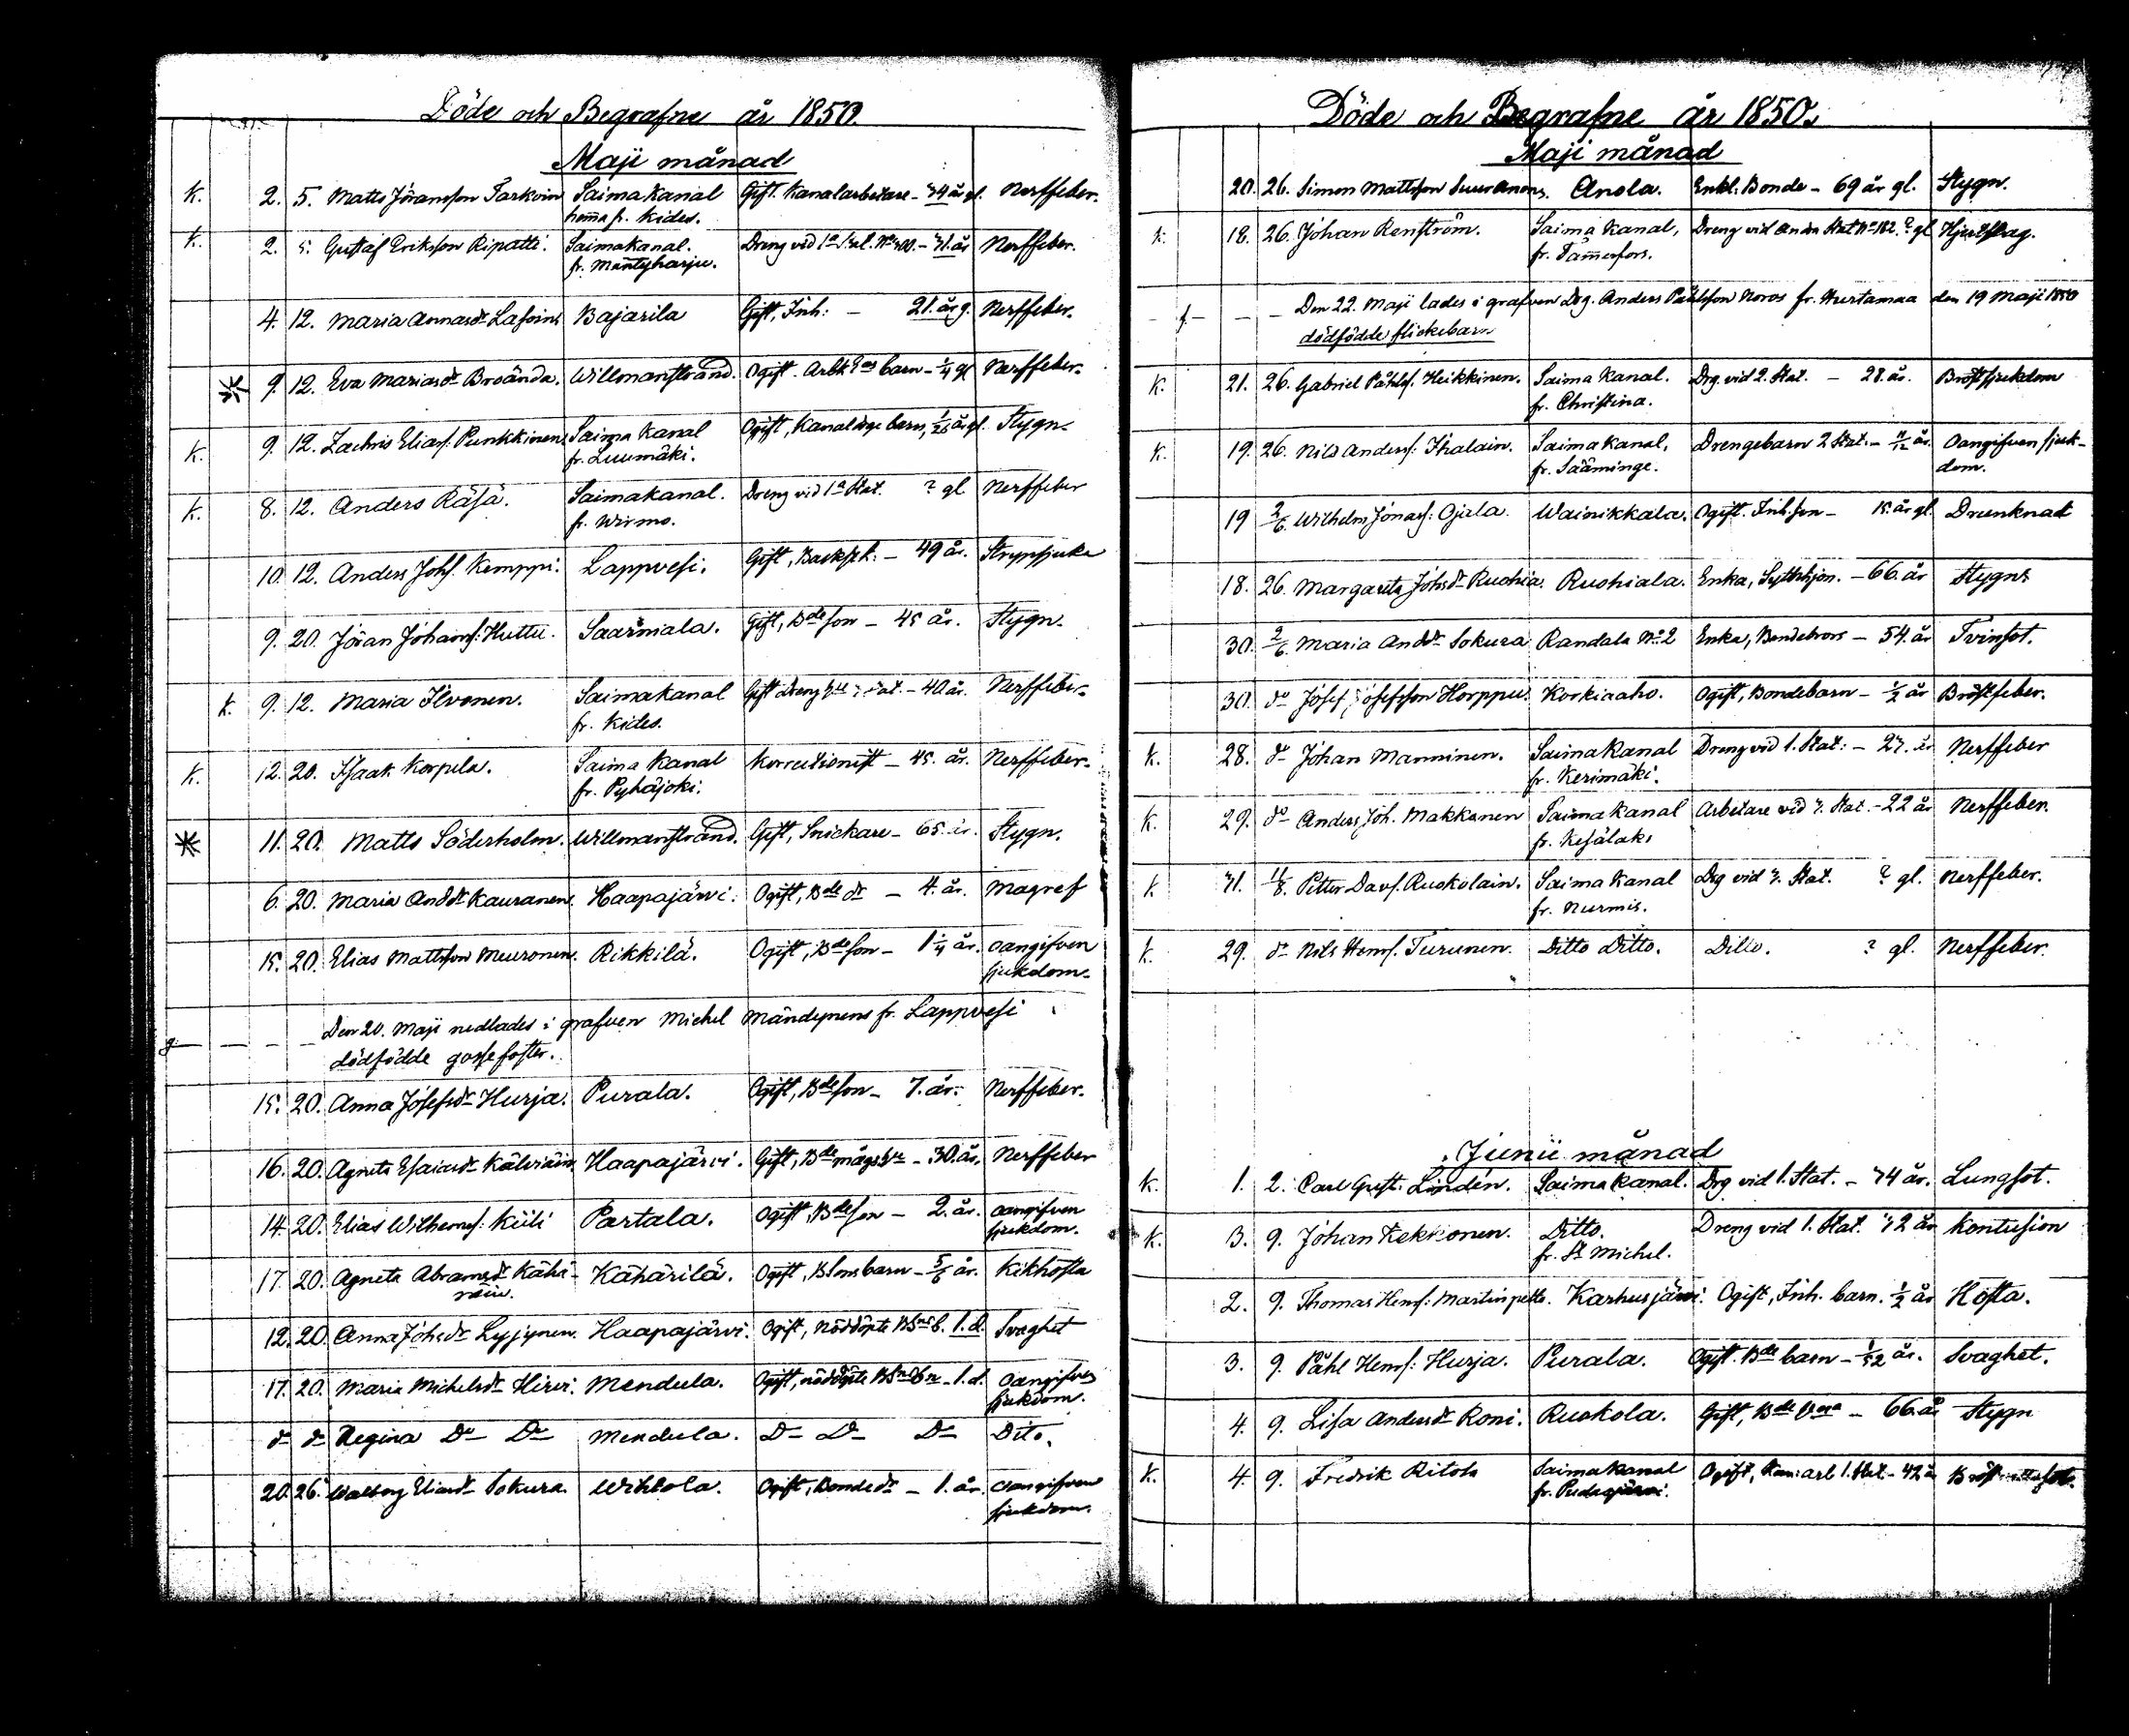 Döde och Begrafne år 1850.
Maji månad
K. 2. 5. Matts Jöransson Tarkvin Saima Kanal Gift. Kanalarbetare - 34 år gl. Nerffeber.
hema fr. Kides.
K. 2. 5. Gustaf Eriksson Ripatti. Saimakanal. Dreng vid 1a Stat. - 31. år Nerffeber.
fr. Mäntyharju.
4. 12. Maria Annasdr Lasoins Bajarila Gift, Inh: - 21. år g. Nerffeber.
9. 12. Eva Mariasdr Broända. Willmanstrand. Ogift. barn - 1/4 gl Nerffeber.
K. 9. 12. Zachris Eliass: Punkkinen Saima Kanal Ogift, Kanal barn, år gl. Stygn.
fr. Luumäki.
K. 8. 12. Anders Räsä. Saimakanal. Dreng vid 1a Stat. ? gl Nerffeber
fr. Wirmo.
10. 12. Anders Johs. Kemppi. Lappvesi. Gift, - 49 år. Strypsjuka
9. 20. Jöran Johanss: Huttu. Saarniala. Gift, Bde son - 45 år. Stygn.
K. 9. 12. Maria Ilvonen. Saimakanal Gift Dreng - 40 år. Nerffeber.
fr. Kides.
K. 12. 20. Isaak Korpela. Saima Kanal Korrectionist - 45. år. Nerffeber.
fr. Pyhäjoki.
11. 20. Matts Söderholm. Willmanstrand. Gift, Snickare - 65 år. Stygn.
6. 20. Maria Anddr Kauranen. Haapajärvi. Ogift, Bde dr - 4. år. Magref
15. 20. Elias Mattsson Meuronen. Rikkilä. Ogift, Bde son - 1 1/4 år. oangifven
sjukdom.
g. - - - - Den 20. Maji nedlades i grafven Michel Mändynens fr. Lappvesi
dödfödde gossefoster.
15. 20. Anna Josefsdr Hurja. Purala. Ogift, Bde son - 7. år. Nerffeber.
16. 20. Agneta Esaiasdr Kälviäin Haapajärvi. Gift, Bde mågs - 30. år. Nerffeber
14. 20. Elias Wilhems: Kiili Partala. Ogift, Bde son - 2. år. oangifven
sjukdom.
17. 20. Agneta Abramsdr Kähä- Kähärilä. Ogift, B sons barn - 5/6 år. Kikhosta
räin.
12. 20. Anna Johsdr Lyjynen. Haapajärvi. Ogift, nöddöpte 1. d. Svaghet
17. 20. Maria Michelsdr Hirvi. Mendula. Ogift, nöddöpte - 1. d. oangifven
sjukdom.
do do Regina Do Do Mendula. Do Do Do Dito.
20. 26. Walborg Eliasdr Sokura. Wihtola. Ogift, Bonde dr - 1. år. oangifven
sjukdom.
Döde och Begrafne år 1850.
Maji månad
20. 26. Simon Mattsson Suuronens. Anola. Enkl. Bonde - 69 år gl. Stygn.
K. 18. 26. Johan Renström. Saima Kanal, Dreng vid andra Stat No 182. ? gl
fr. Tamerfors.
f - - - Den 22. Maji lades i grafven Drg. Anders Påhlsson Noros fr. Hurtamaa den 19 Maji 1850
dödfödde flickebarn
K. 21. 26. Gabriel Påhls. Heikkinen. Saima Kanal. Drg. vid 2. Stat. - 28. år. Bröstsjukdom
fr. Christina.
K. 19. 26. Nils Anderss: Ihalain. Saima Kanal, Drengebarn 2 Stat. - 11/12 år. Oangifven sjuk-
fr. Sääminge. dom.
19 2/6. Wilhelm Jonass: Ojala. Wainikkala. Ogift. Inh. son - 15. år gl. Drunknat
18. 26. Margareta Johsdr Ruohia. Ruohiala. Enka, Sythehjon. - 66. år Stygn
30. 2/6. Maria Anddr Sokura Randala No 2 Enka, - 54. år Tvinsot.
30. do Josef Josefsson Horppu. Korkiaaho. Ogift, Bondebarn - 1/2 år Bröstfeber.
K. 28. do Johan Manninen. Saima Kanal Dreng vid 1. Stat: - 27. år Nerffeber
fr. Kerimäki.
K. 29. do Anders Joh. Makkonen Saima Kanal Arbetare vid 3. Stat - 22 år Nerffeber.
fr. Kesälaks
K 31. 11/8. Petter Davs. Ruokolain. Saima Kanal Drg vid 3. Stat. ? gl. Nerffeber.
fr. Nurmis.
K. 29. do Nils Hens. Turunen. Ditto Ditto. Ditto. ? gl. Nerffeber.
Junii månad
K. 1. 2. Carl Gust. Lindén. Saima Kanal. Drg vid 1. Stat. - 34 år. Lungsot.
K. 3. 9. Johan Kekkonen. Ditto. Dreng vid 1. Stat. 32 år Kontusion
fr. St Michel.
2. 9. Thomas Hens: Martinpelto. Karhusjärvi. Ogift, Inh. barn. 1/2 år Hosta.
3. 9. Påhl Hens: Hurja. Purala. Ogift. Bde barn - 1/52 år. Svaghet.
4. 9. Lisa Andersdr Roni. Ruokola. Gift, Bde - 66. år Stygn
K. 4. 9. Fredrik Ritola Saima Kanal Ogift, Kan: arb 1. Stat - 42 år
fr. Pudasjärvi.